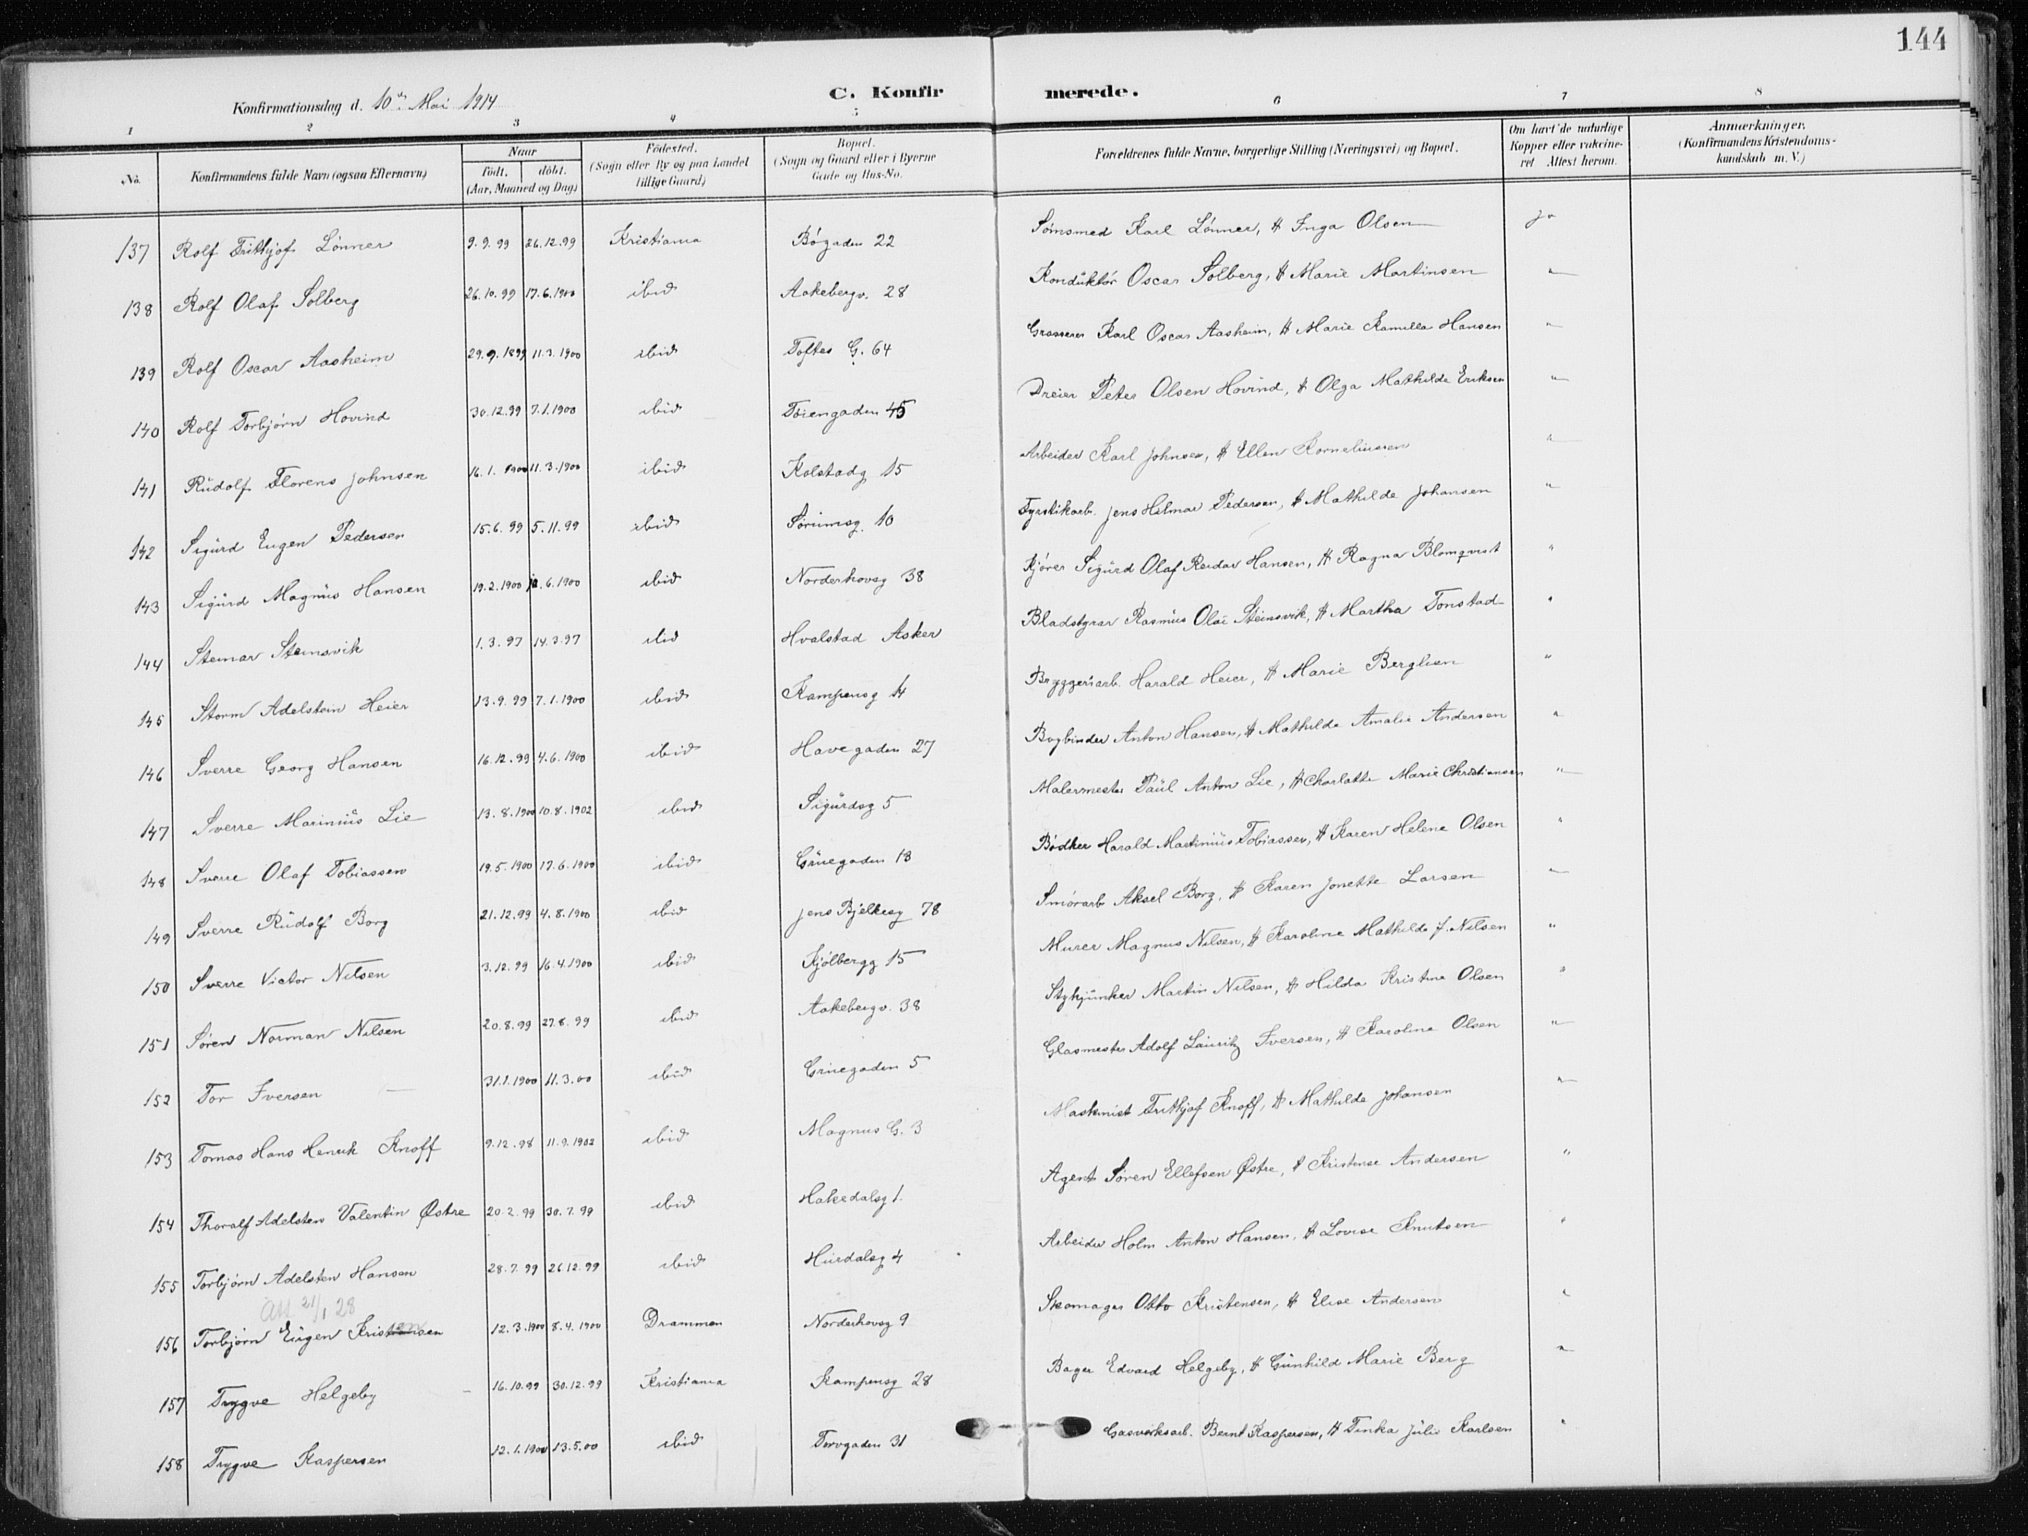 144
Konfirmationsdag d. 10de Mai 1914 C. Konfir merede.
1 2 3 4 5 6 7 8
No. Konfirmandens fulde Navn (ogsaa Efternavn) Naar født. døbt. (Aar, Maaned og Dag) Fødested. (Sogn eller By og paa Landet tillige Gaard) Bopæl. (Sogn og Gaard eller i Byerne Gade og Hus-No. Forældrenes fulde Navne, borgerlige Stilling (Næringsvei) og Bopæl. Om havt de naturlige Kopper eller vakcineret Attest herom. Anmærkninger. (Konfirmandens Kristendomskundskab m. V.)
137 Rolf Frithjof Lönner 9.9.99 26.12.99 Kristiania Bøgaden 22 Sömsmed Karl Lönner, H Inga Olsen ja
138 Rolf Olaf Solberg 26.10.99 17.6.1900 ibid Aakebergv. 28 Konduktör Oscar Solberg, H Marie Martinsen "
139 Rolf Oscar Aasheim 29.9.1899 11.3.1900 ibid Toftes G. 64 Grosserer Karl Oscar Aasheim, H Marie Kamilla Hansen "
140 Rolf Torbjörn Hovind 30.12.99 7.1.1900 ibid Töiengaden 45 Dreier Peter Olsen Hovind, H Olga Mathilde Eriksen "
141 Rudolf Florens Johnsen 16.1.1900 11.3.1900 ibid Kolstadg 15 Arbeider Karl Johnsen, H Ellen Korneliussen "
142 Sigurd Eugen Pedersen 15.6.99 5.11.99 ibid Sörumsg. 10 Fyrstikarb. Jens Hilmar Pedersen, H Mathilde Johansen "
143 Sigurd Magnus Hansen 19.2.1900 .6.1900 ibid Norderhovsg 38 Kjörer Sigurd Olaf Reidar Hansen, H Ragna Blomqvist "
144 Steinar Steinsvik 1.3.97 14.3.97 ibid Hvalstad Asker Bladstyrer Rasmus Olai Steinsvik, H Martha Tonstad "
145 Storm Adelstein Heier 13.9.99 7.1.1900 ibid Kampensg 14 Bryggeriarb. Harald Heier, H Marie Berglien "
146 Sverre Georg Hansen 16.12.99 4.6.1900 ibid Havegaden 27 Bogbinder Anton Hansen, H Mathilde Amalie Andersen "
147 Sverre Marinius Lie 13.8.1900 10.8.1902 ibid Sigurdsg 5 Malermester Paul Anton Lie, H Charlotte Marie Christiansen "
148 Sverre Olaf Tobiassen 19.5.1900 17.6.1900 ibid Grüegaden 13 Bödker Harald Martinius Tobiassen, H Karen Helene Olsen "
149 Sverre Rudolf Borg 21.12.99 4.8.1900 ibid Jens Bjelkesg 78 Smörarb Aksel Borg, H Karen Jonette Larsen "
150 Sverre Victor Nilsen 3.12.99 16.4.1900 ibid Kjölbergg 15 Murer Magnus Nilsen, H Karoline Mathilde f. Nilsen "
151 Sören Norman Nilsen 20.8.99 27.8.99 ibid Aakebergv. 38 Stykjunker Martin Nilsen, H Hilda Kristine Olsen "
152 Tor Iversen 31.1.1900 11.3.00 ibid Grüegaden 5 Glasmester Adolf Lauritz Iversen, H Karoline Olsen "
153 Tomas Hans Henrik Knoff 9.12.98 11.9.1902 ibid Magnus G. 3 Maskinist Frithjof Knoff, H Mathilde Johansen "
154 Thoralf Adelsten Valentin Østre 20.2.99 30.7.99 ibid Hakedalsg 1. Agent Sören Ellefsen Østre, H Kristense Andersen "
155 Torbjörn Adelsten Hansen 28.7.99 26.12.99 ibid Hurdalsg 4 Arbeider Holm Anton Hansen, H Lovise Knutsen "
att 21/1 28
156 Torbjörn Eugen Kristensen 12.3.1900 8.4.1900 Drammen Norderhovsg 9 Skomager Otto Kristensen, H Elise Andersen "
157 Trygve Helgeby 16.10.99 30.12.99 Kristiania Kampensg 28 Bager Edvard Helgeby, H Gunhild Marie Berg "
158 Trygve Kaspersen 12.1.1900 13.5.00 ibid Torvgaden 31 Gasverksarb. Bernt Kaspersen, H Tinka Julie Karlsen "